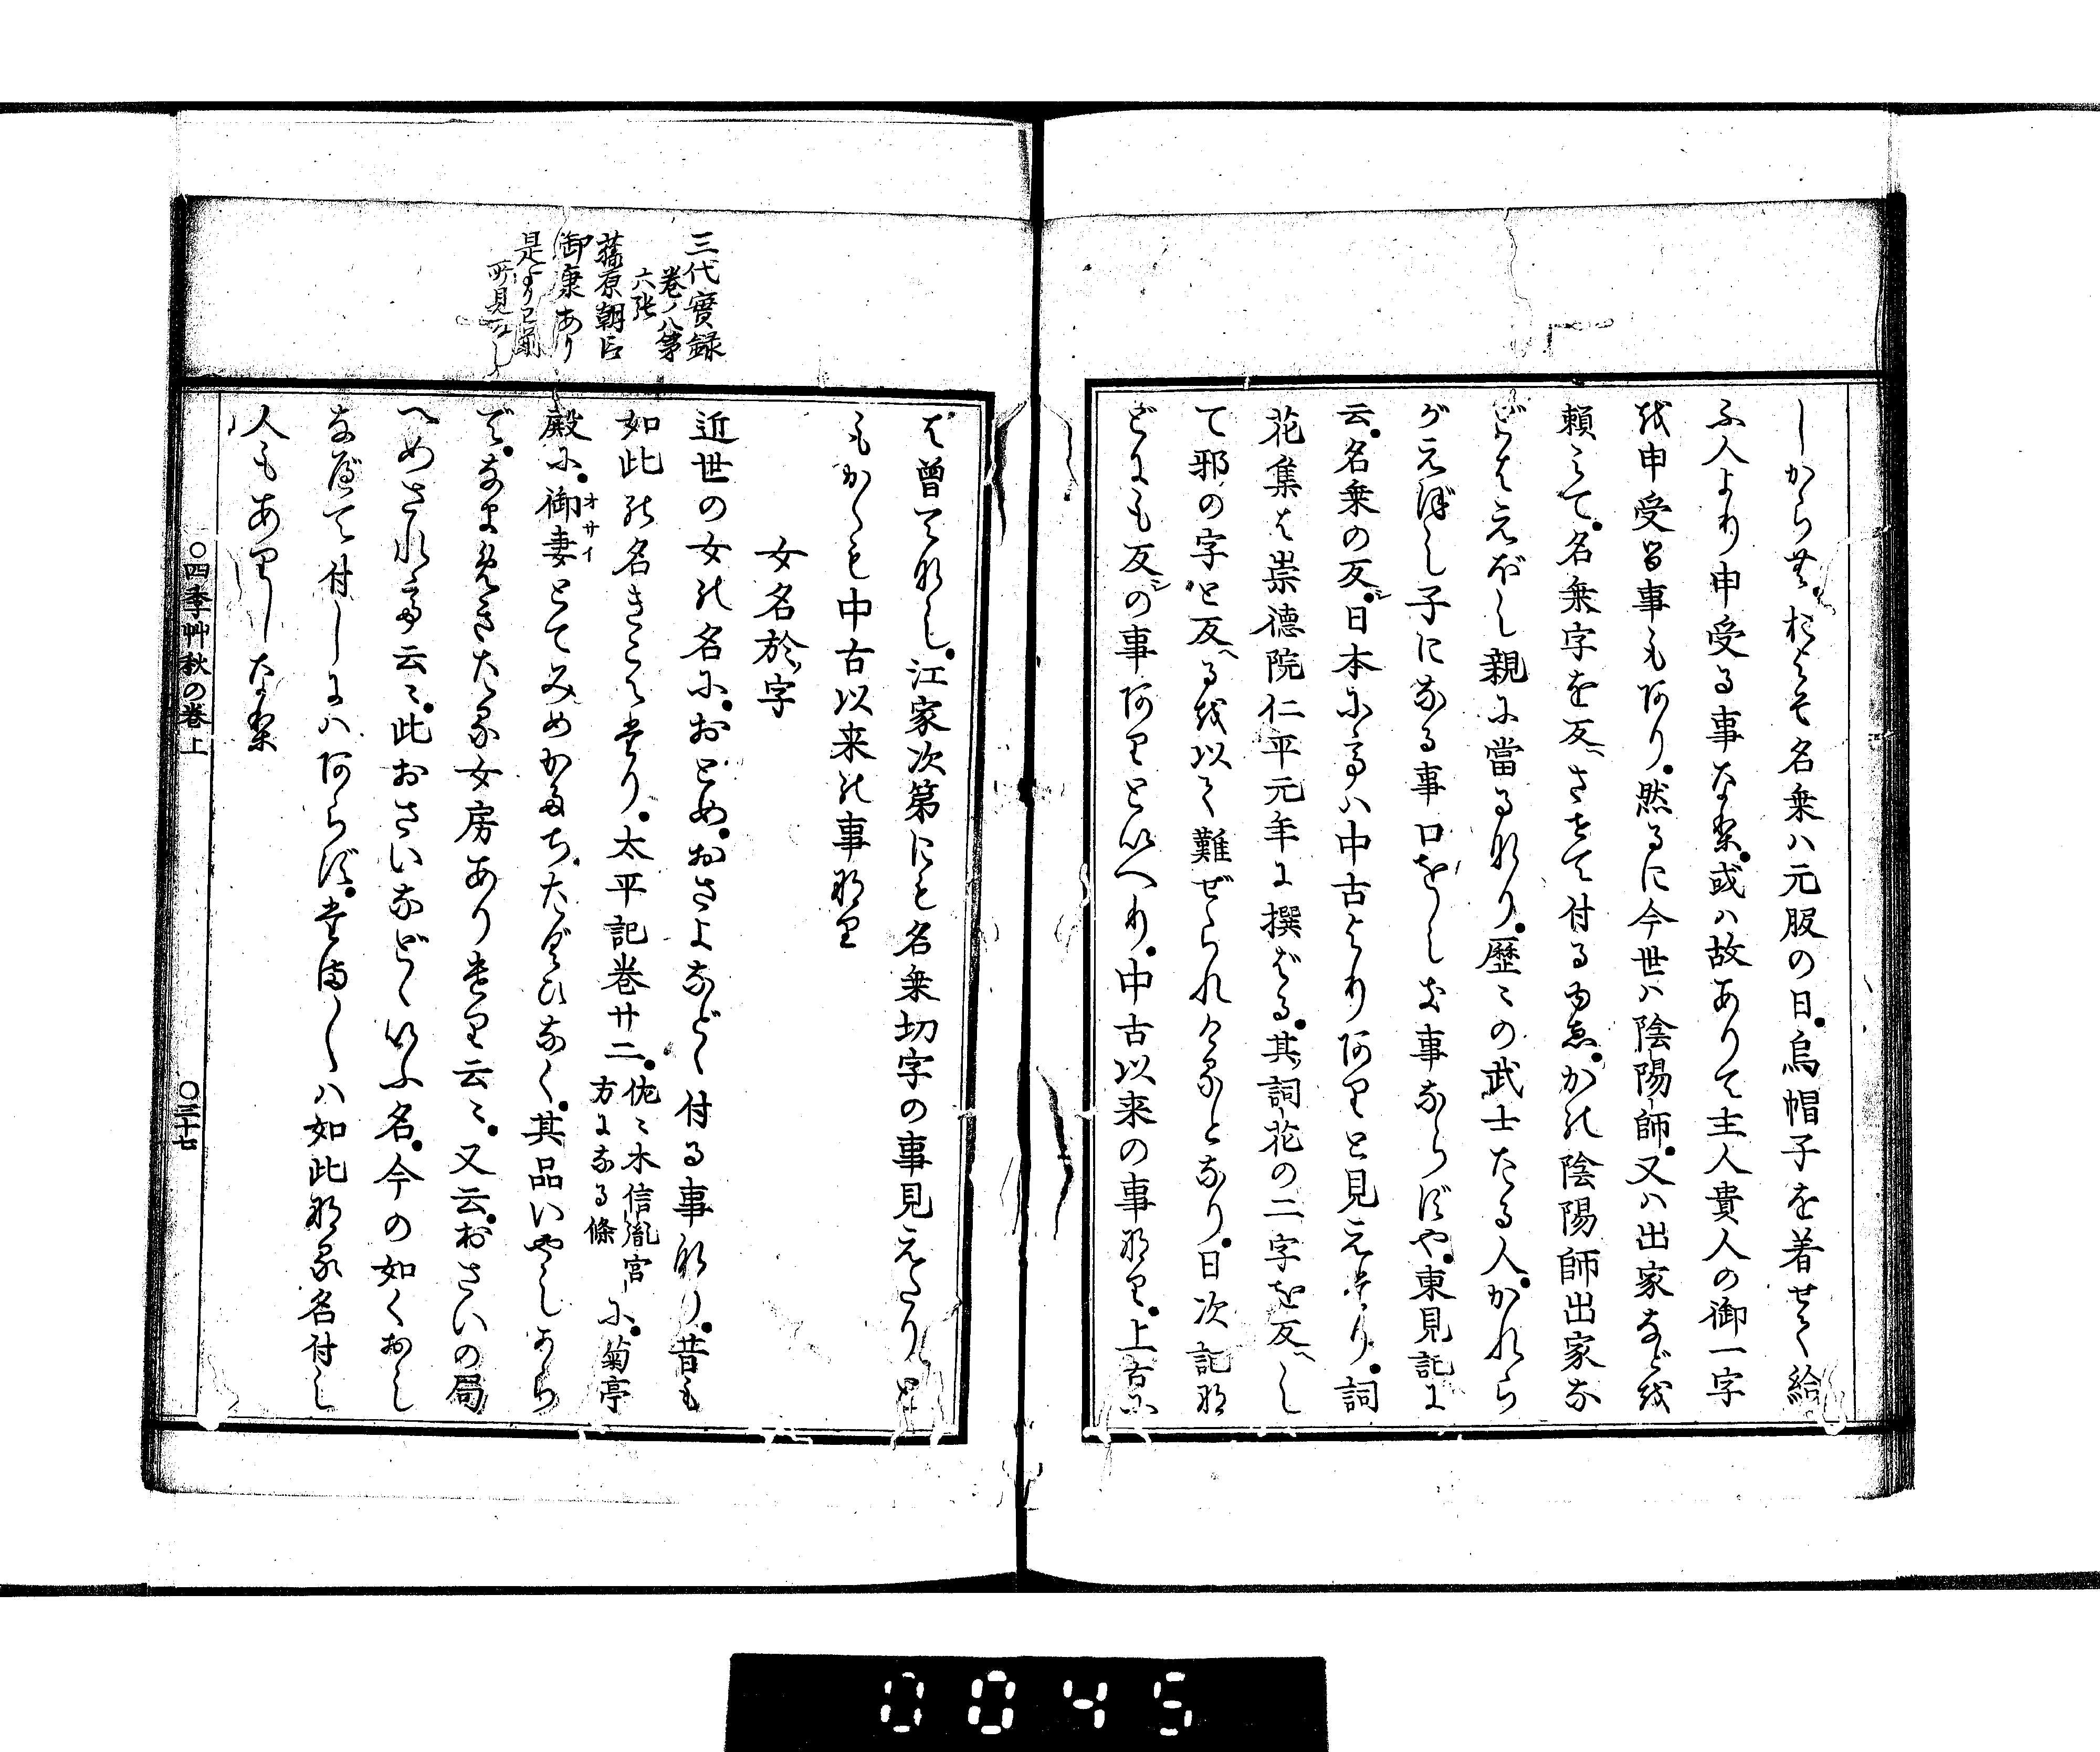 しからず。およそ名乗ハ元服の日。烏帽子を着せて給
ふ人より申受る事なり。或ハ故ありて主人貴人の御一字
を申受る事もあり。然るに今世ハ陰陽師。又ハ出家などを
頼みて。名乗字を反さきて付るゆゑ。かの陰陽師出家な
どはえぼし親に當るなり。歴〻の武士たる人。かれら
がえぼし子になる事口をしき事ならずや。東見記に
云。名乗の反。日本に有ハ中古よりありと見えたり。詞
花集は崇徳院仁平元年に撰ばる。其詞花の二字を反し
て邪の字と反るを以て難ぜられけるとなり。日次記な
どにも反の事ありといへり。中古以来の事なり。上古に
は曽てなし。江家次第にも名乗切字の事見えたり是
もかくも中古以来の事なり
女名於字
近世の女の名に。おとめ。おさよなどゝ付る事なり。昔も
如此の名きこえたり。太平記巻廾二。佐〻木信胤宮
方になる條
に。菊亭
殿に。御妻とてみめかたち。たぐひなく。其品いやしから
で。なまめきたる女房ありけり云〻。又云。おさいの局
へめされて云〻。此おさいなどゝいふ名。今の如くおし
なべて付しにハあらず。たま〱ハ如此なる名付し
人もありしなり
三代實録
巻ノ八第
六張
藤原朝臣
御康あり
是より已前
所見なし
オサイ
〇四季艸秋の巻上
〇三十七
0045